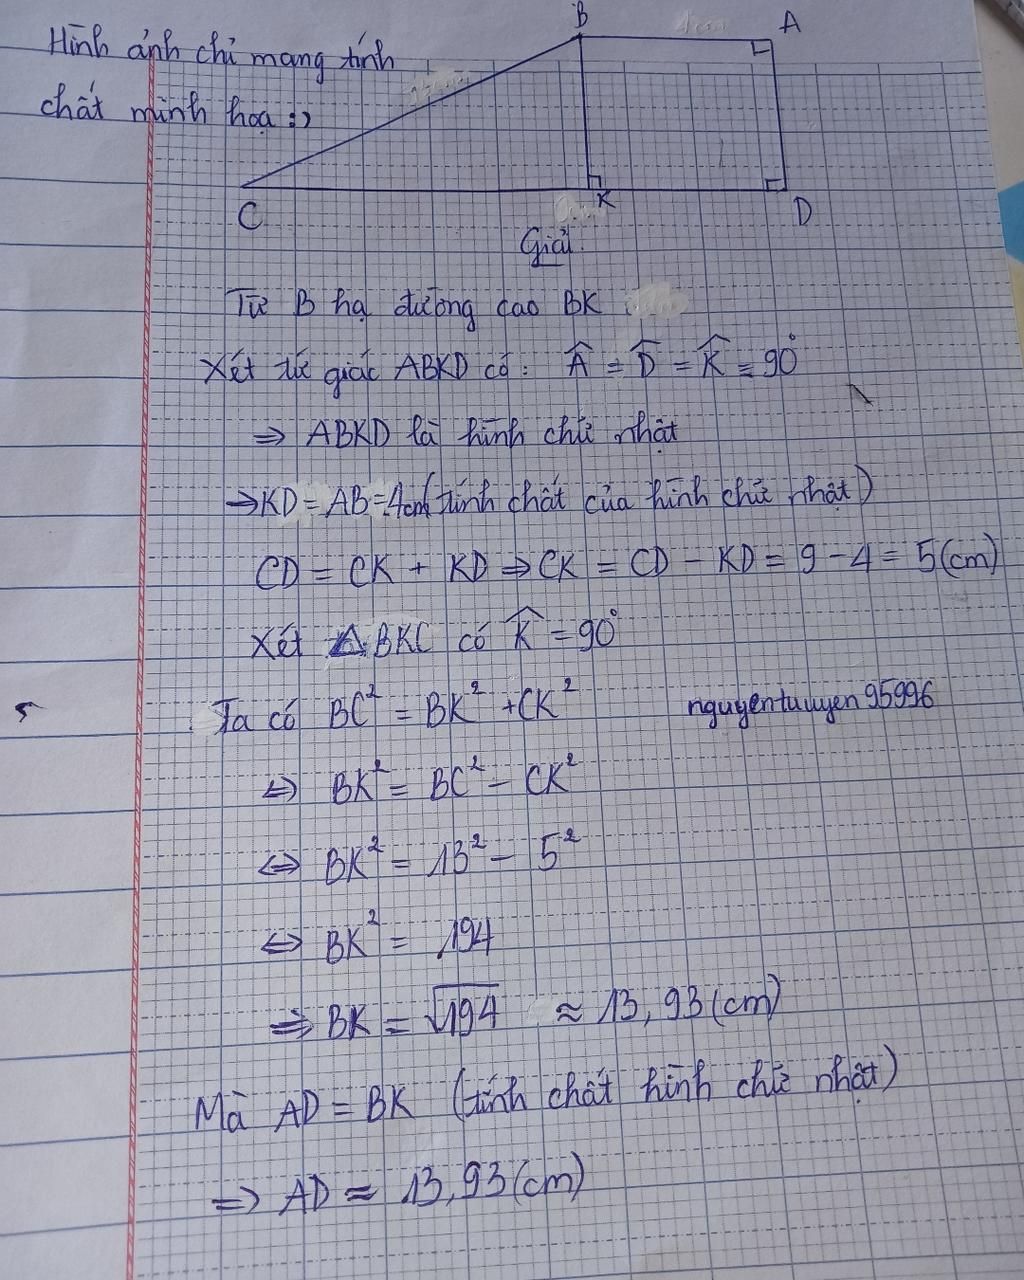 Hình ảnh chỉ mang tính
chất minh hoạ :)
B
A
C
K
D
Giải
Từ B hạ đường cao BK
Xét tứ giác ABKD có: Â = D̂ = K̂ = 90°
⇒ ABKD là hình chữ nhật
→ KD = AB = 4cm (tính chất của hình chữ nhật)
CD = CK + KD ⇒ CK = CD - KD = 9 - 4 = 5 (cm)
Xét △BKC có K̂ = 90°
Ta có BC² = BK² + CK²
nguyentuuyen95996
⇔ BK² = BC² - CK²
⇔ BK² = 13² - 5²
⇔ BK² = 194
⇒ BK = √194 ≈ 13,93 (cm)
Mà AD = BK (tính chất hình chữ nhật)
⇒ AD ≈ 13,93 (cm)